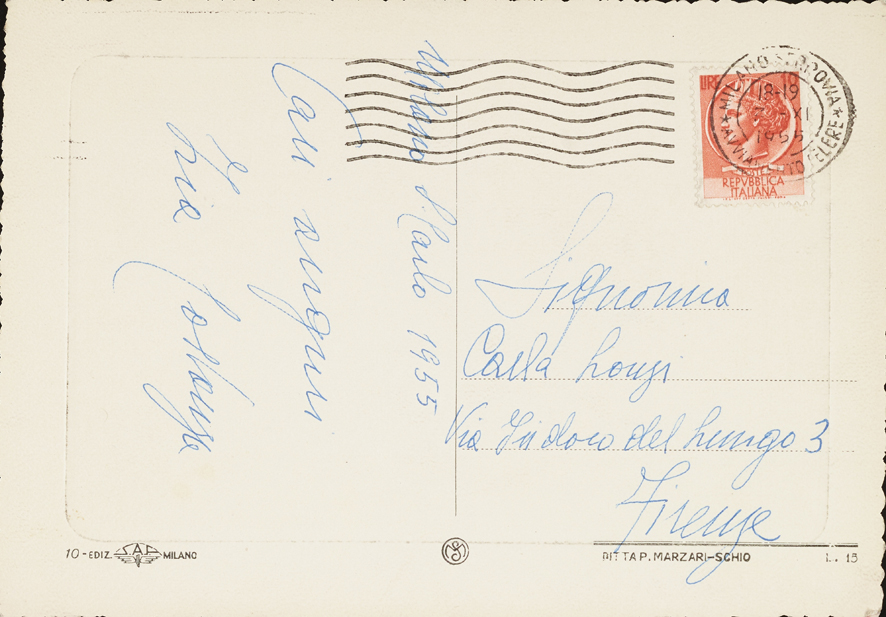 Milano S. Carlo 1955
Cari auguri
Zia Costanza
LIRE 10
REPVBBLICA
ITALIANA
MILANO FERROVIA
18-19
XI
1955
CELERE
Signorina
Carla Lonzi
Via Isidoro del Lungo 3
Firenze
10 - EDIZ. SAF MILANO
DITTA P. MARZARI-SCHIO
L. 15